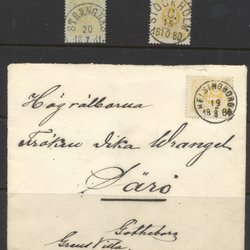 STRENGNÄS
20
STOCKHOLM
HELSINGBORG
19
Högvälborna
Fröken Dika Wrangel
Särö
Göteborg
Grand Villa